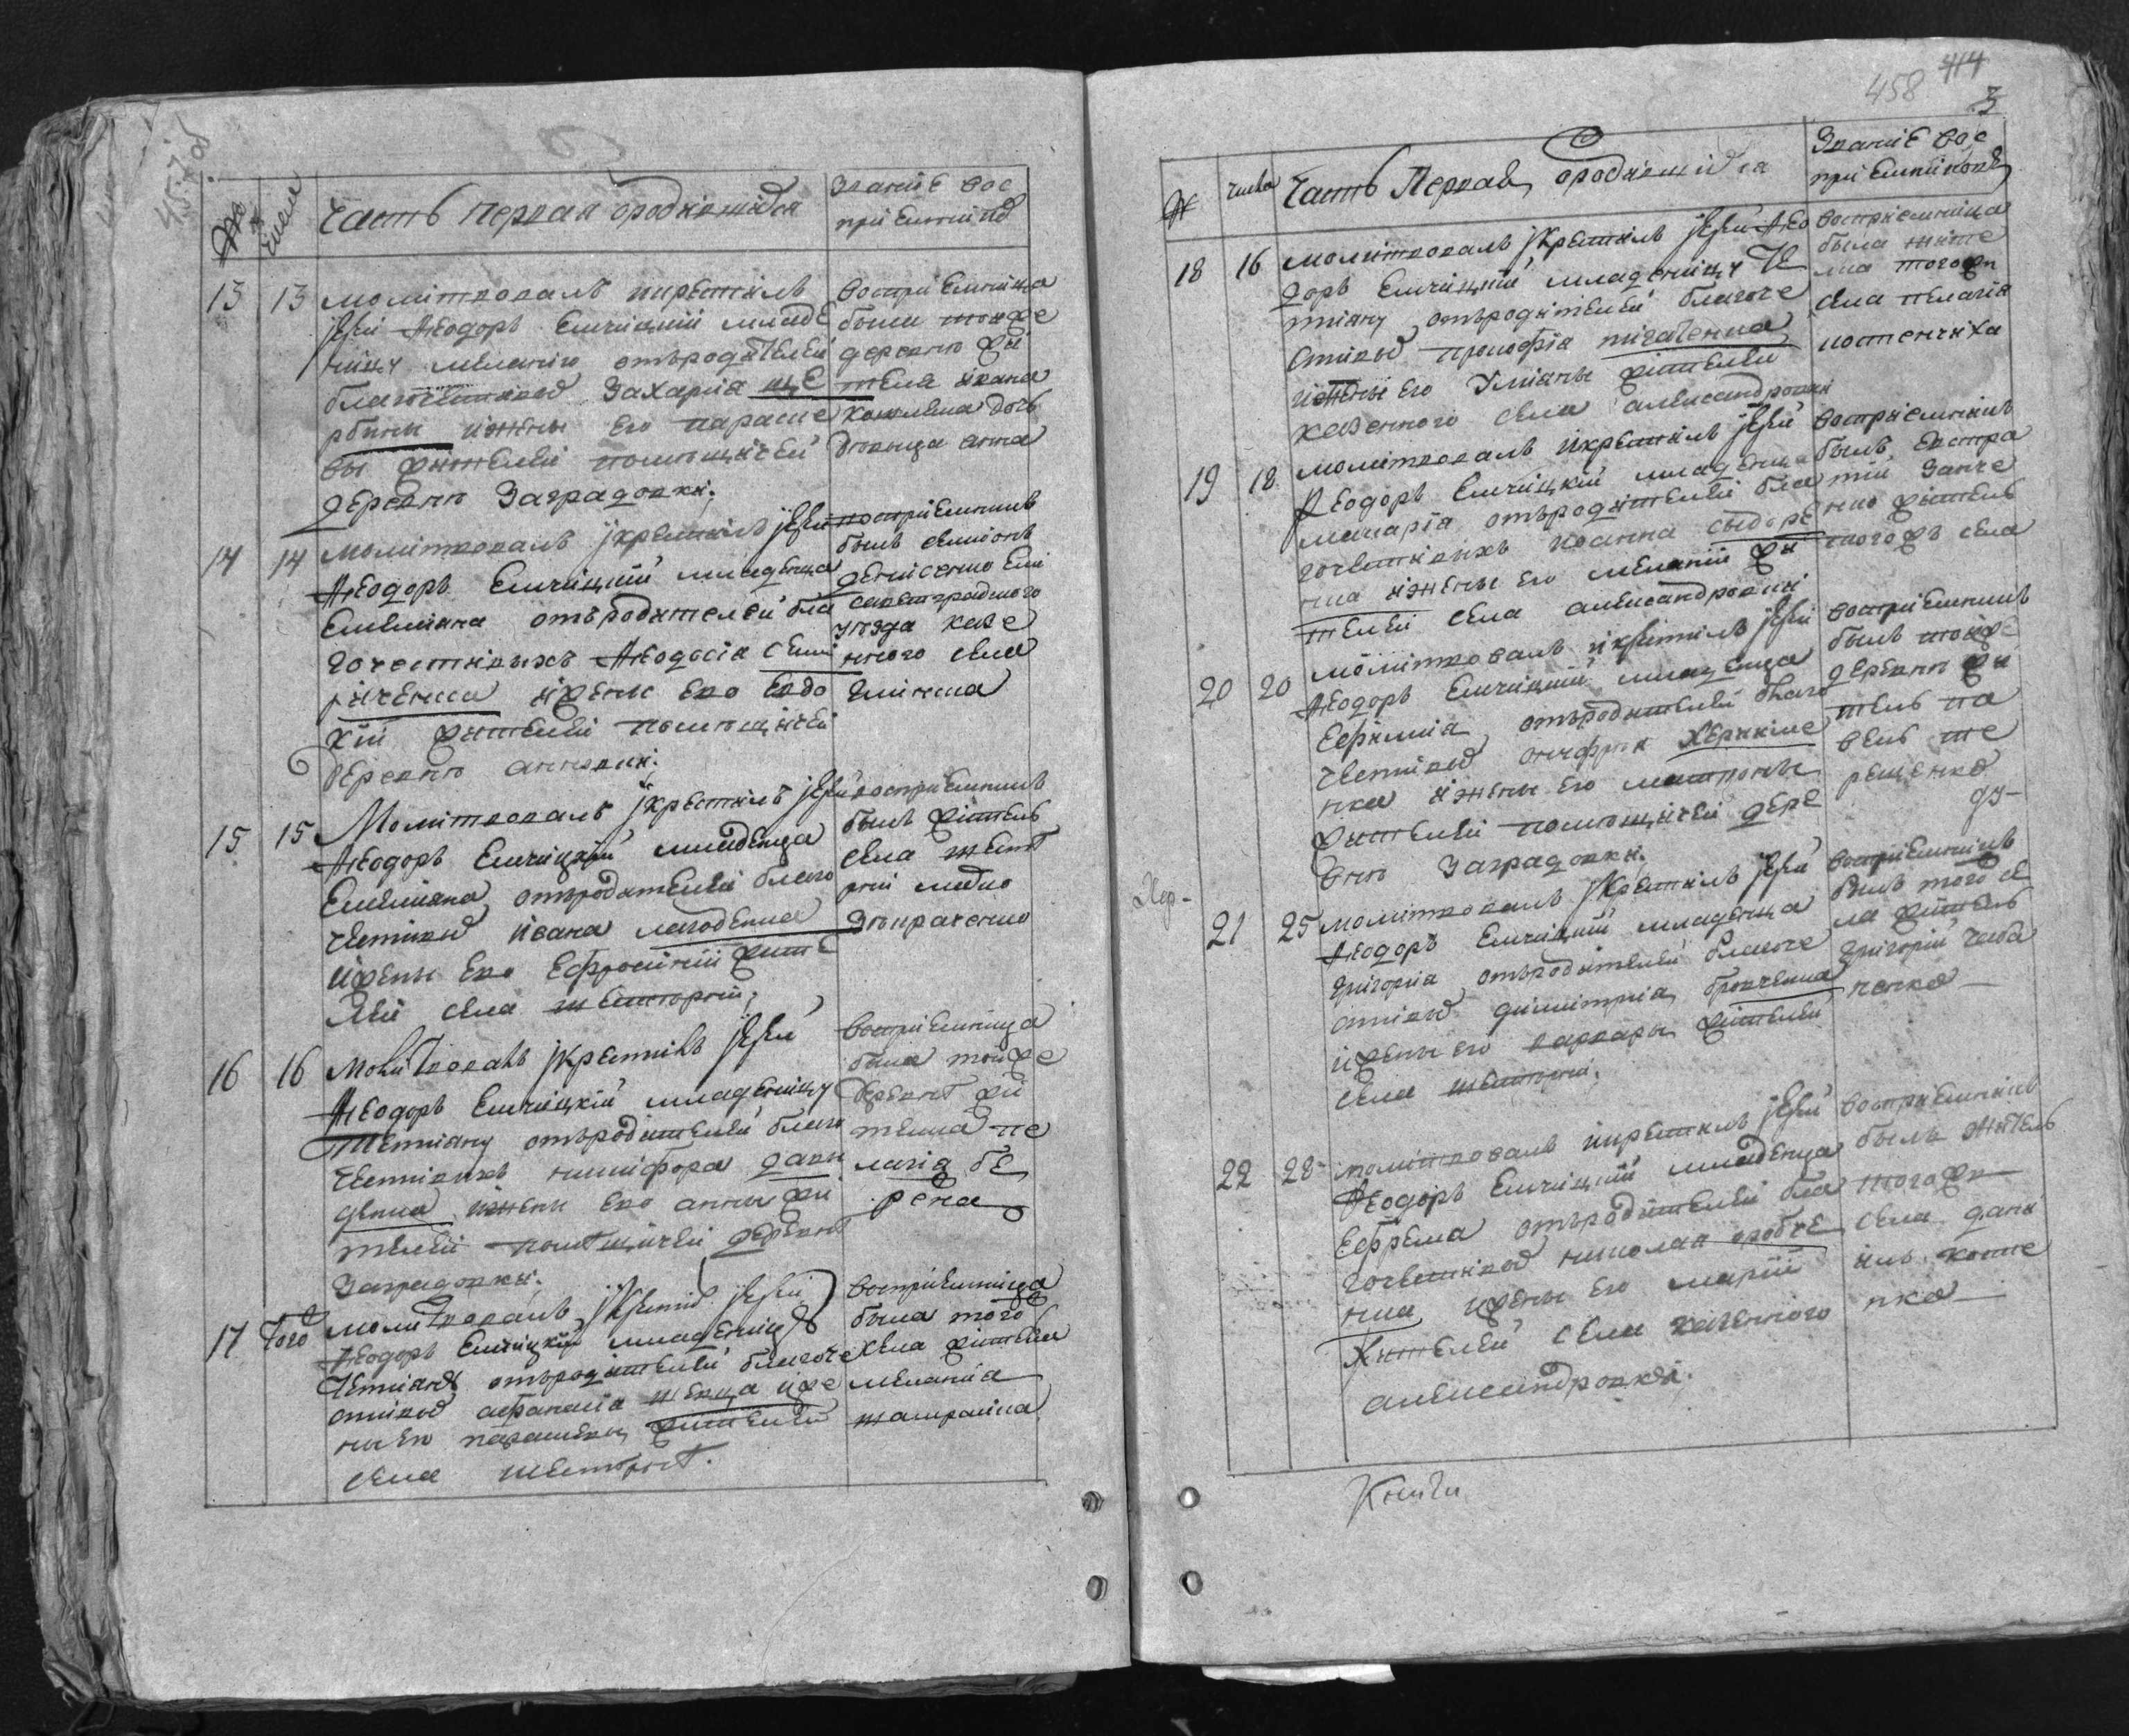 457об
№ числа Часть первая ородившихся Званiе вос
прiемникѡв
13 13 молiтвовалъ икрестилъ
iерей Ѳеодоръ Емчицкiй младе
ницу меланiю отъродителей
благочестивых Захарiя ще
рбины ижены его параске
вы жителей помещичей
деревнѣ Заградовки.
Воспрiемница
была тойже
деревнѣ жи
теля ивана
дочь
девица анна
14 14 молiтвовалъ iкрестилъ iерей
Ѳеодоръ Емчицкiй младенца
Емелиана отъродителей бла
гочестивыхъ Ѳеодосiя
ижены его Евдо
кiи жителей помещичей
деревнѣ анновки.
воспрiемникъ
былъ семiонъ
денисенко Ели
саветградского
уезда казе
нного села
15 15 Молiтвовалъ iкрестилъ iерей
Ѳеодоръ Емчицкiй младенца
Емелиана отъродителей благо
честивых ивана
ижены его Ефросинiи жите
лей села шестернi.
воспрiемникъ
былъ житель
села шест
рнi
16 16 Молiтвовалъ iкрестилъ iерей
Ѳеодоръ Емчицкiй младеницу
Теттiану отъродителей благо
честивыхъ никифора дави
денка ижены его анны жи
телей помѣщичей деревнѣ
Заградовки.
Воспрiемница
была тойже
деревнѣ жи
телка пе
лагiя бе
рена
17 того молiтвовалъ iкрестил iерей
Ѳеодоръ Емчицкiй младеницу
отъродителей благоче
стивых афанасiя шевца иже
ны его параскевы жителей
села шестернѣ.
Воспрiемница
была того
села жителка
меланiя
458 414
3
№ числа Часть Первая ородившихся Званiе вос
прiемниковъ
18 16 молiтвовалъ iкрестилъ iерей Ѳео
доръ Емчицкiй младеницу Те
ттiану отъродителей благоче
стивых прокофiя
ижены его Улiяны жителей
казенного села александровки
воспрiемница
была жите
лка тогожи
села пелагiя
19 18 молiтвовалъ iкрестилъ iерей
Ѳеодоръ Емчицкiй младенца
макарiя отъродителей бла
гочестивыхъ иоанна сидоре
нка ижены его меланiи жи
телей села александровки
воспрiемникъ
былъ евстра
тiй
нко житель
тогожъ села
20 20 молiтвовалъ iкрестилъ iерей
Ѳеодоръ Емчицкiй младенца
Ефимiя отъродителей благо
честивых онуфрiя
нка ижены его матроны
жителей помещичей дере
внѣ Заградовки.
воспрiемникъ
былъ тойже
деревнѣ жи
тель па
велъ те
рещенко
Хер-
21 25 молiтвовалъ iкрестилъ iерей
Ѳеодоръ Емчицкiй младенца
григорiя отъродителей благоче
стивых димiтрия
ижены его варвары жителей
села шестернi.
воспрiемникъ
былъ того се
ла житель
григорiй чаба
ненко
22 28 молiтвовалъ iкрестилъ iерей
Ѳеодоръ Емчицкiй младенца
Ефрема отъродителей бла
гочестивых николая
нка ижены его марiи
жителей села казенного
александровки.
воспрiемникъ
былъ житель
тогожи
села дани
илъ
нко